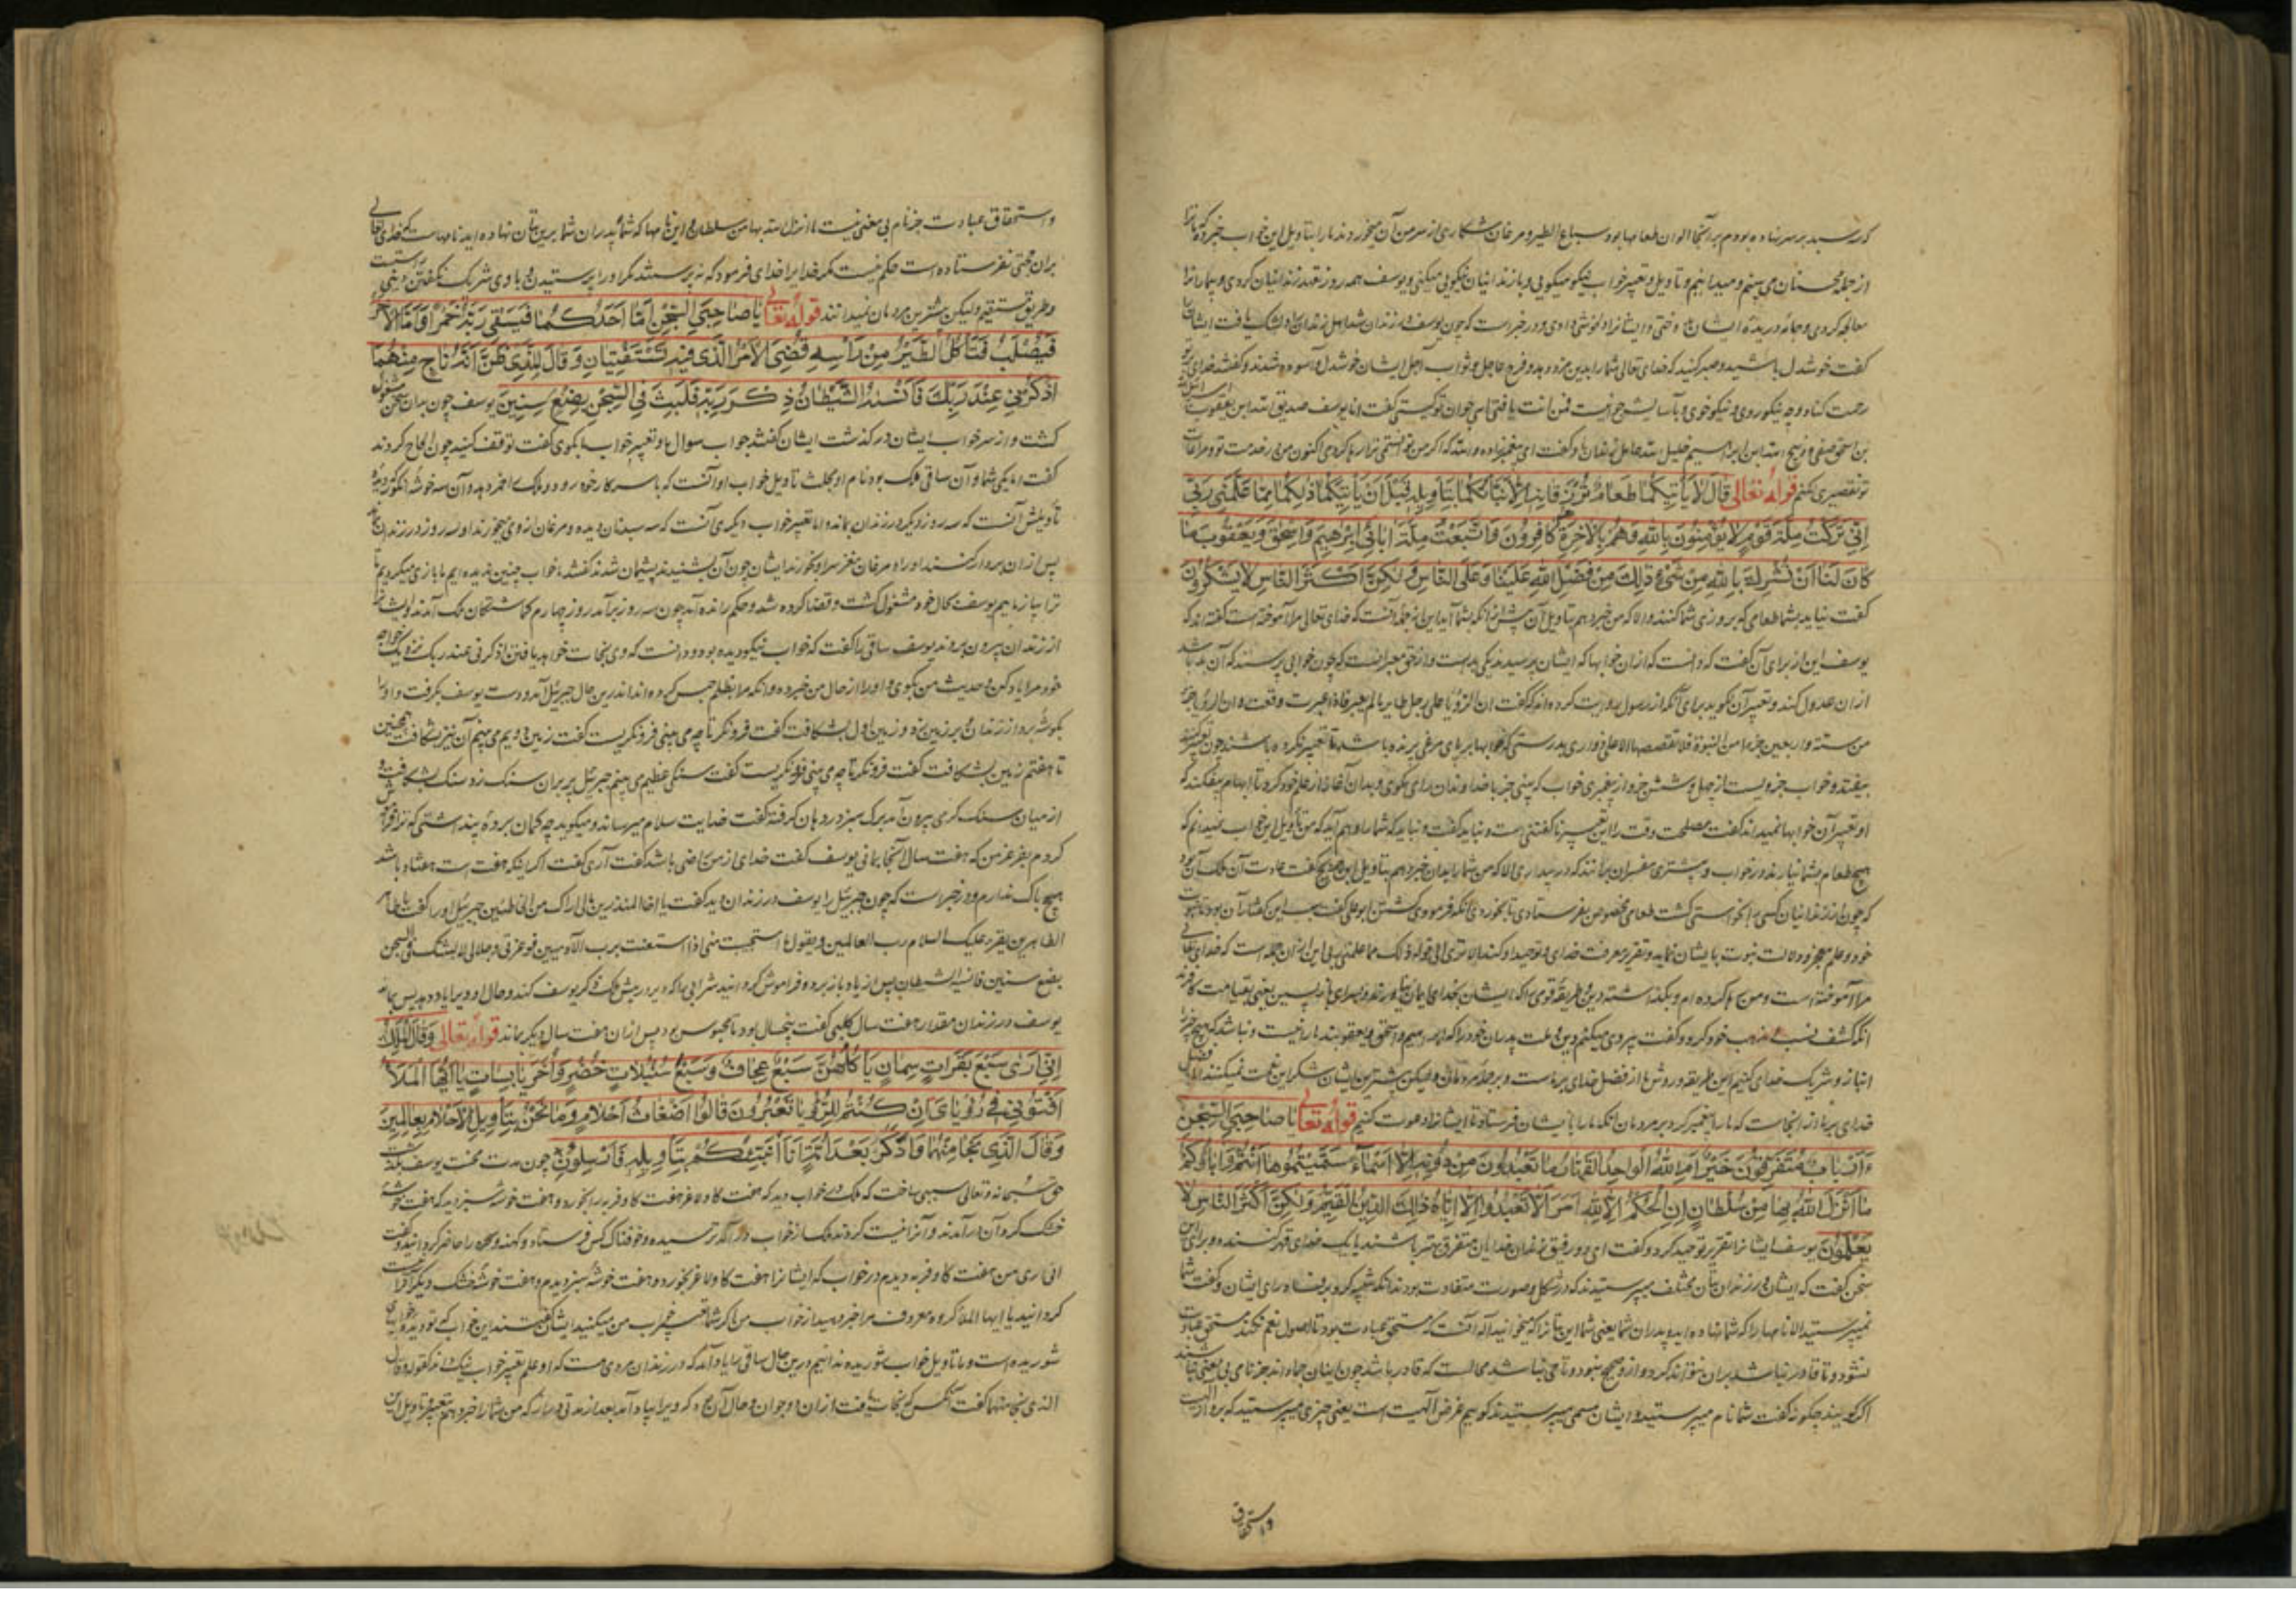 که سه سبد بر سر نهاده بودم بر آنجا الوان طعامها بود سباع الطیر و مرغان شکاری از سر من آن میخوردند ما را بتاویل این خواب خبر ده که ما ترا
از جمله محسنان می بینیم و میدانیم و تاویل و تعبیر خواب نیکو میگویی و با زندانیان نیکویی میکنی و یوسف همه روز تعهد زندانیان کردی و بیمار انرا
معالجه کردی و جامه دریده ایشان دوختی و ایشانرا دلخوشی دادی و در خبر است که چون یوسف در زندان شد اهل زندان را دلتنگ یافت ایشانرا
گفت خوشدل باشید و صبر کنید که خدای تعالی شما را بدین مزد دهد و فرج عاجل و ثواب آجل ایشان خوشدل و آسوده شدند و گفتند خدای بر تو
رحمت کناد و چه نیکو روی و نیکو خوی فمن انت یا فتی ای جوان تو کیستی گفت انا یوسف صدیق الله ابن یعقوب اسرائیل الله
بن اسحق صفی و ذبیح الله ابن ابرهیم خلیل الله عامل زندان گفت ای پیغمبر زاده والله که اگر من توانستمی ترا رها کردمی اکنون من در خدمت تو و مراعات
تو تقصیری نکنم قوله تعالی قَالَ لَا يَأْتِيكُمَا طَعَامٌ تُرْزَقَانِهِ إِلَّا نَبَّأْتُكُمَا بِتَأْوِيلِهِ قَبْلَ أَنْ يَأْتِيَكُمَا ذَلِكُمَا مِمَّا عَلَّمَنِي رَبِّي
إِنِّي تَرَكْتُ مِلَّةَ قَوْمٍ لَا يُؤْمِنُونَ بِاللَّهِ وَهُمْ بِالْآخِرَةِ كَافِرُونَ وَاتَّبَعْتُ مِلَّةَ آبَائِي إِبْرَهِيمَ وَإِسْحَقَ وَيَعْقُوبَ مَا
كَانَ لَنَا أَنْ نُشْرِكَ بِاللَّهِ مِنْ شَيْءٍ ذَلِكَ مِنْ فَضْلِ اللَّهِ عَلَيْنَا وَعَلَى النَّاسِ وَلَكِنَّ أَكْثَرَ النَّاسِ لَا يَشْكُرُونَ
گفت نیاید بشما طعامی که بروزی شما کنند الا که من خبر دهم بتاویل آن پیش از آنکه بشما آید این از جمله آنست که خدای تعالی مرا آموخته است گفته اند که
یوسف این از برای آن گفت که دانست که ازان خوابها که ایشان پرسیدند یکی بد است و از حق معبر آنست که چون خوابی پرسند که آن بد باشد
ازان عدول کند و تعبیر آن نگوید برای آنکه از رسول روایت کرده اند که گفت ان الرؤیا علی رجل طایر ما لم یعبر فاذا عبرت وقعت و ان الرؤیا جزء
من ستة و اربعین جزءا من النبوة فلا تقصصها الا علی ذی رای بدرستی که خوابها بر پای مرغی پرنده باشد تا تعبیر نکرده باشند چون تعبیر کنند
بیفتد و خواب جزویست از چهل و شش جزو از پیغمبری خواب که بینی جز با خداوندان رای مگوی
او تعبیر آن خوابها نمیداند گفت مصلحت وقت را این تعبیر ناگفتنی است و نباید گفت و نباید که شما را وهم آید که من تاویل این خواب نمیدانم که
هیچ طعام بشما نیارند در خواب و بیشتری مفسران برانند که در بیداری الا که من شما را بدان خبر دهم بتاویل ابن جریج گفت عادت آن ملک آن بود
که چون از زندانیان کسی را بخواستی کشت طعامی مخصوص بفرستادی تا بخوردی آنگه فرمودی کشتن ابو علی گفت سبب این گفتار آن بود تا نبوت
خود و علم معجز و دلالت نبوت با ایشان نماید و تقریر معرفت خدای و توحید او کند الا تری الی قوله ذلکما مما علمنی ربی این ازان جمله است که خدای تعالی
مرا آموخته است و من رها کرده ام و بگذاشته دین و طریقه قومی را که ایشان بخدای ایمان نیاورند و بسرای بازپسین یعنی بقیامت کافرند
آنگه کشف نسب و مذهب خود کرد و گفت پیروی میکنم دین و ملت پدران خود را که ابرهیم و اسحق و یعقوبند ما را نیست و نباشد که هیچ چیز را
انباز و شریک خدای کنیم این طریقه و روش ما از فضل خدای بر ماست و بر جمله مردمان و لیکن بیشترین ایشان شکر این نعمت نمیکنند و فضل
خدای بر ما از آنجاست که ما را پیغمبر کرد بر مردمان آنکه ما را بایشان فرستاد تا ایشانرا دعوت کنیم قوله تعالی يَا صَاحِبَيِ السِّجْنِ
ءَأَرْبَابٌ مُتَفَرِّقُونَ خَيْرٌ أَمِ اللَّهُ الْوَاحِدُ الْقَهَّارُ مَا تَعْبُدُونَ مِنْ دُونِهِ إِلَّا أَسْمَاءً سَمَّيْتُمُوهَا أَنْتُمْ وَآبَاؤُكُمْ
مَا أَنْزَلَ اللَّهُ بِهَا مِنْ سُلْطَانٍ إِنِ الْحُكْمُ إِلَّا لِلَّهِ أَمَرَ أَلَّا تَعْبُدُوا إِلَّا إِيَّاهُ ذَلِكَ الدِّينُ الْقَيِّمُ وَلَكِنَّ أَكْثَرَ النَّاسِ لَا
يَعْلَمُونَ یوسف ایشانرا تقریر توحید کرد و گفت ای دو رفیق زندان خدایان متفرق بهتر باشند یا یک خدای قهر کننده و برای این
سخن گفت که ایشان در زندان بتان مختلف میپرستیدند که در شکل و صورت متفاوت بودند
نمیپرستید الا نامها را که شما نهاده اید و پدران شما یعنی شما این بتانرا که میخوانید اله آنست که مستحق عبادت بود تا اصول نعم نکند مستحق عبادت
نشود و تا قادر نباشد بران نتواند کرد و از وی صحیح نبود و تا حی نباشد محالست که قادر باشد چون اینان جماداند جز نامی بی معنی نباشند
اگر گویند چگونه گفت شما نام میپرستید و ایشان مسمی میپرستیدند گوییم غرض الهیت است یعنی چیزی میپرستید که برو از الهیت
واستحقاق
واستحقاق عبادت جز نام بی معنی نیست ما انزل الله بها من سلطان این نامها که شما و پدران شما برین بتان نهاده اید نامهاست که خدای تعالی
بران حجتی نفرستاده است حکم نیست مگر خدایرا خدای فرمود که نه پرستند مگر او را پرستیدن و با وی شریک نگفتن دینی راستست
و طریق مستقیم و لیکن بیشترین مردمان نمیدانند قوله تعالی يَا صَاحِبَيِ السِّجْنِ أَمَّا أَحَدُكُمَا فَيَسْقِي رَبَّهُ خَمْرًا وَأَمَّا الْآخَرُ
فَيُصْلَبُ فَتَأْكُلُ الطَّيْرُ مِنْ رَأْسِهِ قُضِيَ الْأَمْرُ الَّذِي فِيهِ تَسْتَفْتِيَانِ وَقَالَ لِلَّذِي ظَنَّ أَنَّهُ نَاجٍ مِنْهُمَا
اذْكُرْنِي عِنْدَ رَبِّكَ فَأَنْسَاهُ الشَّيْطَانُ ذِكْرَ رَبِّهِ فَلَبِثَ فِي السِّجْنِ بِضْعَ سِنِينَ یوسف چون بدان سخن مشغول
گشت و از سر خواب ایشان در گذشت ایشان گفتند جواب سوال ما و تعبیر خواب ما بگوی گفت توقف کنید چون الحاح کردند
گفت اما یکی شما و آن ساقی ملک بود تاویل خواب او آنست که با سر کار خود رود و ملک را خمر دهد و آن سه خوشه انگور که دیده
تأویلش آنست که سه روز دیگر در زندان بماند و اما تعبیر خواب دیگری آنست که سه سبد نان دیده و مرغان ازوی میخورند او سه روز در زندان بماند
پس ازان بردار کنند او را و مرغان مغز سر او بخورند ایشان چون آن بشنیدند پشیمان شدند گفتند ما خواب چنین ندیده ایم ما بازی میکردیم تا
ترا بیازماییم یوسف بحال خود مشغول گشت و قضا کرده شد و حکم رانده آمد چون سه روز برآمد روز چهارم گماشتگان ملک آمدند و ایشانرا
از زندان بیرون بردند یوسف ساقی را گفت که خواب نیکو دیده بود و دانست که وی نجات خواهد یافتن اذکرنی عند ربک نزدیک خواجه
خود مرا یاد کن و حدیث من بگوی و او را از حال من خبر ده و آنکه مرا بظلم حبس کرده اند اندرین حال جبرئیل آمد و دست یوسف بگرفت و او را
بگوشه برد از زندان و پر بر زمین زد و زمین اول بشکافت گفت فرونگر تا چه می بینی فرونگریست گفت زمین دویم می بینم آن نیز بشکافت همچنین
تا هفتم زمین بشکافت گفت فرونگر تا چه می بینی فرونگریست گفت سنگی عظیم می بینم جبرئیل پر بران سنگ زد سنگ بشکافت و
از میان سنگ کرمی بیرون آمد برگ سبز در دهان گرفته گفت خدایت سلام میرساند و میگوید چه گمان برده پنداشتی که ترا فراموش
کردم بعز عز من که هفت سال آنجا بمانی یوسف گفت خدای از من راضی باشد گفت آری گفت اگر اینکه هفت است هفتاد باشد
هیچ باک ندارم و در خبر است که چون جبرئیل را یوسف در زندان دید گفت یا اخا المنذرین مالی اراک من الخاطئین جبرئیل او را گفت یا طاهر
الطاهرین یقرء علیک السلام رب العالمین و یقول ما استحییت منی اذا استغثت برب الآدمیین فو عزتی و جلالی لالبثنک فی السجن
بضع سنین فانسیه الشیطان پس از یاد بازبرد و فراموش گردانید شرابی را که در پیش ملک ذکر یوسف کند و حال او ویرا یاد دهد پس بماند
یوسف در زندان مقدار هفت سال کلبی گفت پنجسال بود تا محبوس بود پس ازان هفت سال دیگر بماند قوله تعالی وَقَالَ الْمَلِكُ
إِنِّي أَرَى سَبْعَ بَقَرَاتٍ سِمَانٍ يَأْكُلُهُنَّ سَبْعٌ عِجَافٌ وَسَبْعَ سُنْبُلَاتٍ خُضْرٍ وَأُخَرَ يَابِسَاتٍ يَا أَيُّهَا الْمَلَأُ
أَفْتُونِي فِي رُؤْيَايَ إِنْ كُنْتُمْ لِلرُّؤْيَا تَعْبُرُونَ قَالُوا أَضْغَاثُ أَحْلَامٍ وَمَا نَحْنُ بِتَأْوِيلِ الْأَحْلَامِ بِعَالِمِينَ
وَقَالَ الَّذِي نَجَا مِنْهُمَا وَادَّكَرَ بَعْدَ أُمَّةٍ أَنَا أُنَبِّئُكُمْ بِتَأْوِيلِهِ فَأَرْسِلُونِ چون مدت محنت یوسف بگذشت
حق سبحانه و تعالی سببی ساخت که ملک در خواب دید که هفت گاو لاغر هفت گاو فربه را بخورد و هفت خوشه سبز دید که هفت خوشه
خشک گرد آن درآمدند و آنرا نیست کردند ملک از خواب درآمد ترسیده و خوفناک کس فرستاد و کهنه و سحره را حاضر گردانید و گفت
انی اری من هفت گاو فربه دیدم در خواب که ایشانرا هفت گاو لاغر بخورد و هفت خوشه سبز دیدم و هفت خوشه خشک دیگر
گردانید یا ایها الملأ گروه معروف مرا خبر دهید از خواب من اگر شما تعبیر خواب من میکنید ایشان گفتند این خواب که تو دیده خوابهای
شوریده است و ما تاویل خواب شوریده ندانیم درین حال ساقی را یاد آمد که در زندان مردی هست که او علم تعبیر خواب نیک داند کقوله و قال
الذی نجا منهما گفت آنکس که نجات یافت ازان دو جوان و حال آن که ویرا بیاد آمد بعد از مدتی دراز که من شما را خبر دهم بتعبیر و تاویل این